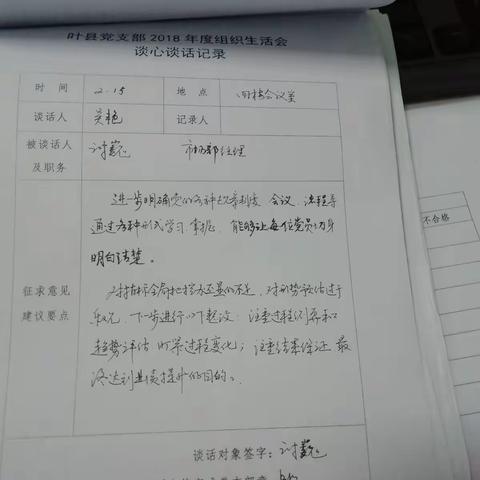 叶县党支部2018年度组织生活会
谈心谈话记录
时 间 2.15 地 点 四楼会议室
谈话人 吴艳 记录人
被谈话人
及职务 许巍 市场部经理
进一步明确党的各种规章制度、会议、流程等
通过各种形式学习、掌握,能够让每位党员切身
明白清楚。
征求意见
建议要点
对指标全局把控力还显的不足,对形势预估过于
乐观,下一步进行以下起议:注重过程
趋势评估 时常过程变化;注重结果保证 最
终达到业绩提升的目的。
谈话对象签字:许巍
不合格